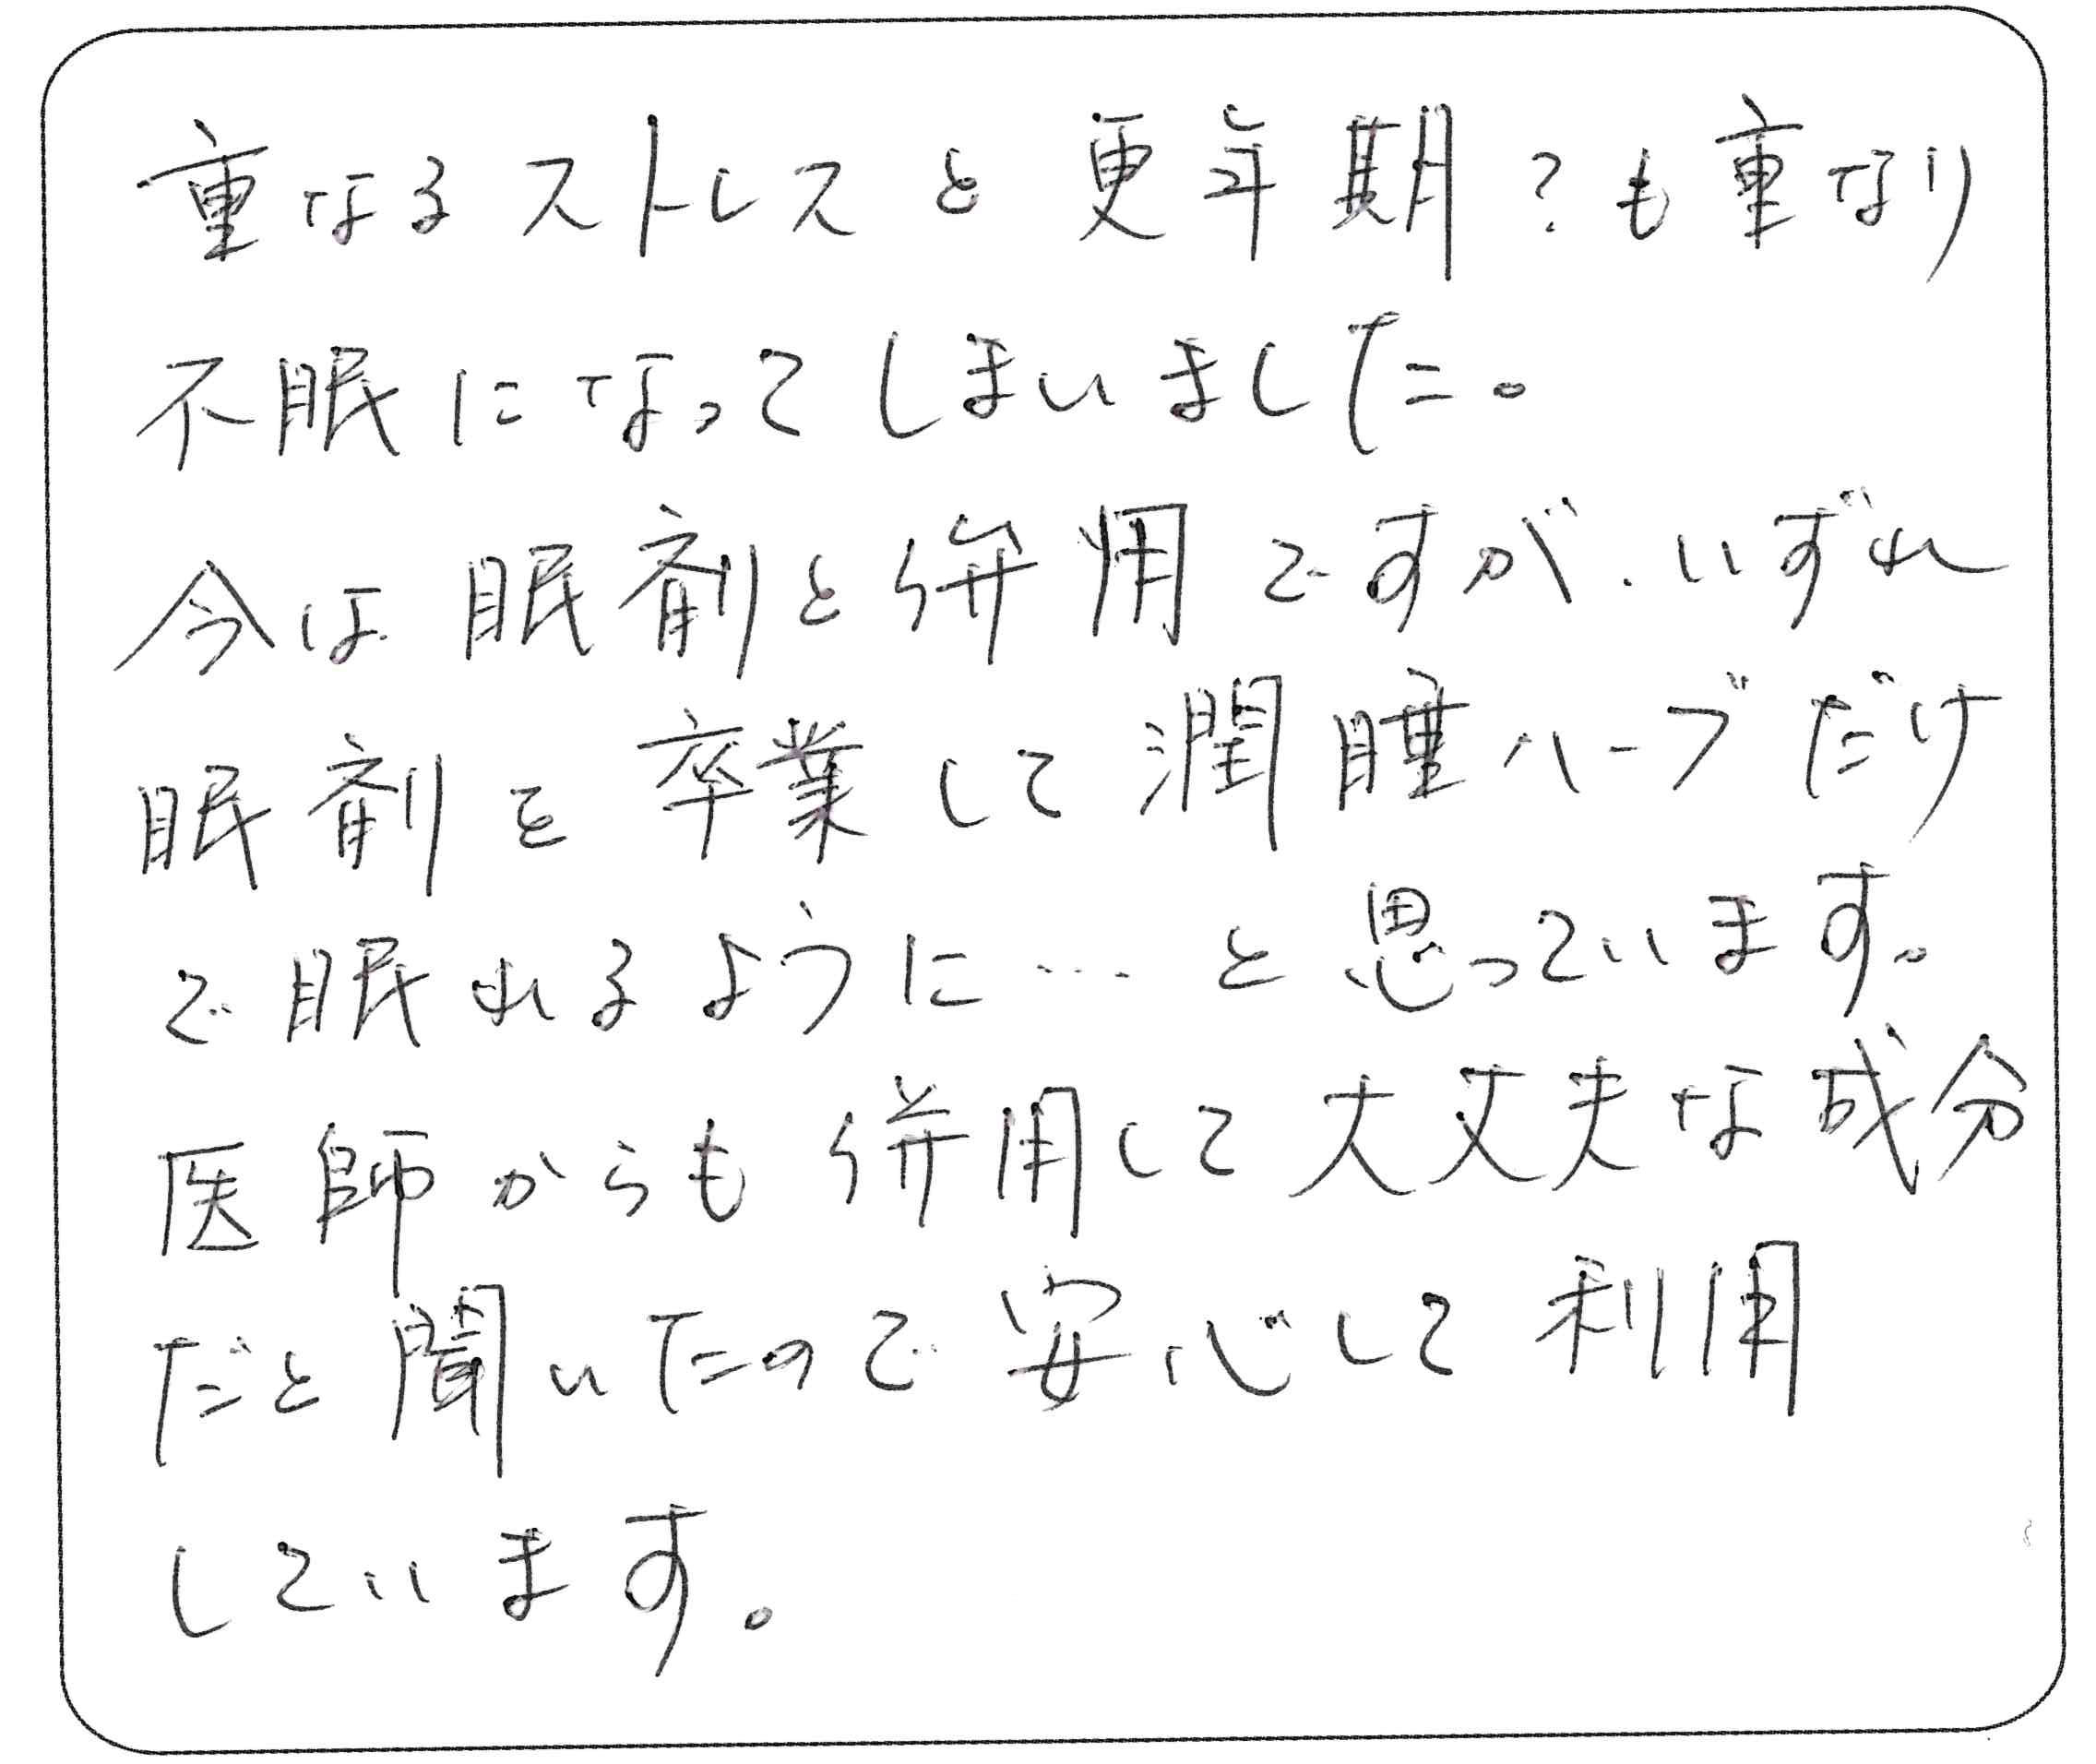 重なるストレスと更年期?も重なり
不眠になってしまいました。
今は眠剤と併用ですが、いずれ
眠剤を卒業して潤睡ハーブだけ
で眠れるように…と思っています。
医師からも併用して大丈夫な成分
だと聞いたので安心して利用
しています。